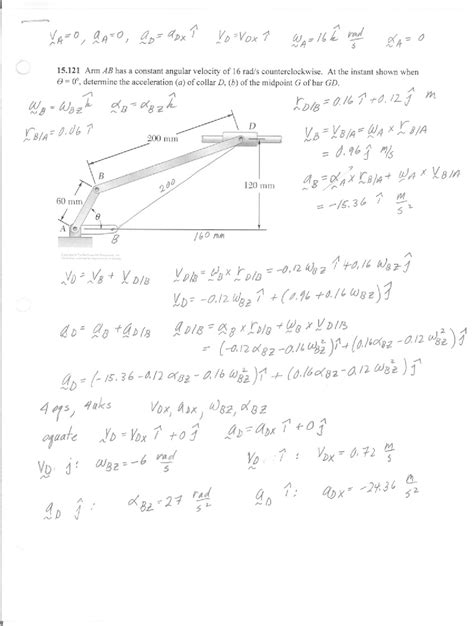 v_A = 0, a_A = 0, a_D = a_Dx î   v_D = v_Dx î   ω_A = 16 k̂ rad/s   α_A = 0
15.121 Arm AB has a constant angular velocity of 16 rad/s counterclockwise. At the instant shown when
Θ = 0°, determine the acceleration (a) of collar D, (b) of the midpoint G of bar GD.
ω_B = ω_Bz k̂   α_B = α_Bz k̂   r_D/B = 0.16 î + 0.12 ĵ m
r_B/A = 0.06 î
v_B = v_B/A = ω_A x r_B/A
= 0.96 ĵ m/s
a_B = α_A x r_B/A + ω_A x v_B/A
= -15.36 î m/s²
D
200 mm
B
200
120 mm
60 mm
θ
A
B
160 mm
v_D = v_B + v_D/B   v_D/B = ω_B x r_D/B = -0.12 ω_Bz î + 0.16 ω_Bz ĵ
v_D = -0.12 ω_Bz î + (0.96 + 0.16 ω_Bz) ĵ
a_D = a_B + a_D/B   a_D/B = α_B x r_D/B + ω_B x v_D/B
= (-0.12 α_Bz - 0.16 ω²_Bz) î + (0.16 α_Bz - 0.12 ω²_Bz) ĵ
a_D = (-15.36 - 0.12 α_Bz - 0.16 ω²_Bz) î + (0.16 α_Bz - 0.12 ω²_Bz) ĵ
4 eqs, 4 uks   v_Dx, a_Dx, ω_Bz, α_Bz
equate   v_D = v_Dx î + 0 ĵ   a_D = a_Dx î + 0 ĵ
v_D ĵ: ω_Bz = -6 rad/s   v_D î: v_Dx = 0.72 m/s
a_D ĵ: α_Bz = 27 rad/s²   a_D î: a_Dx = -24.36 m/s²